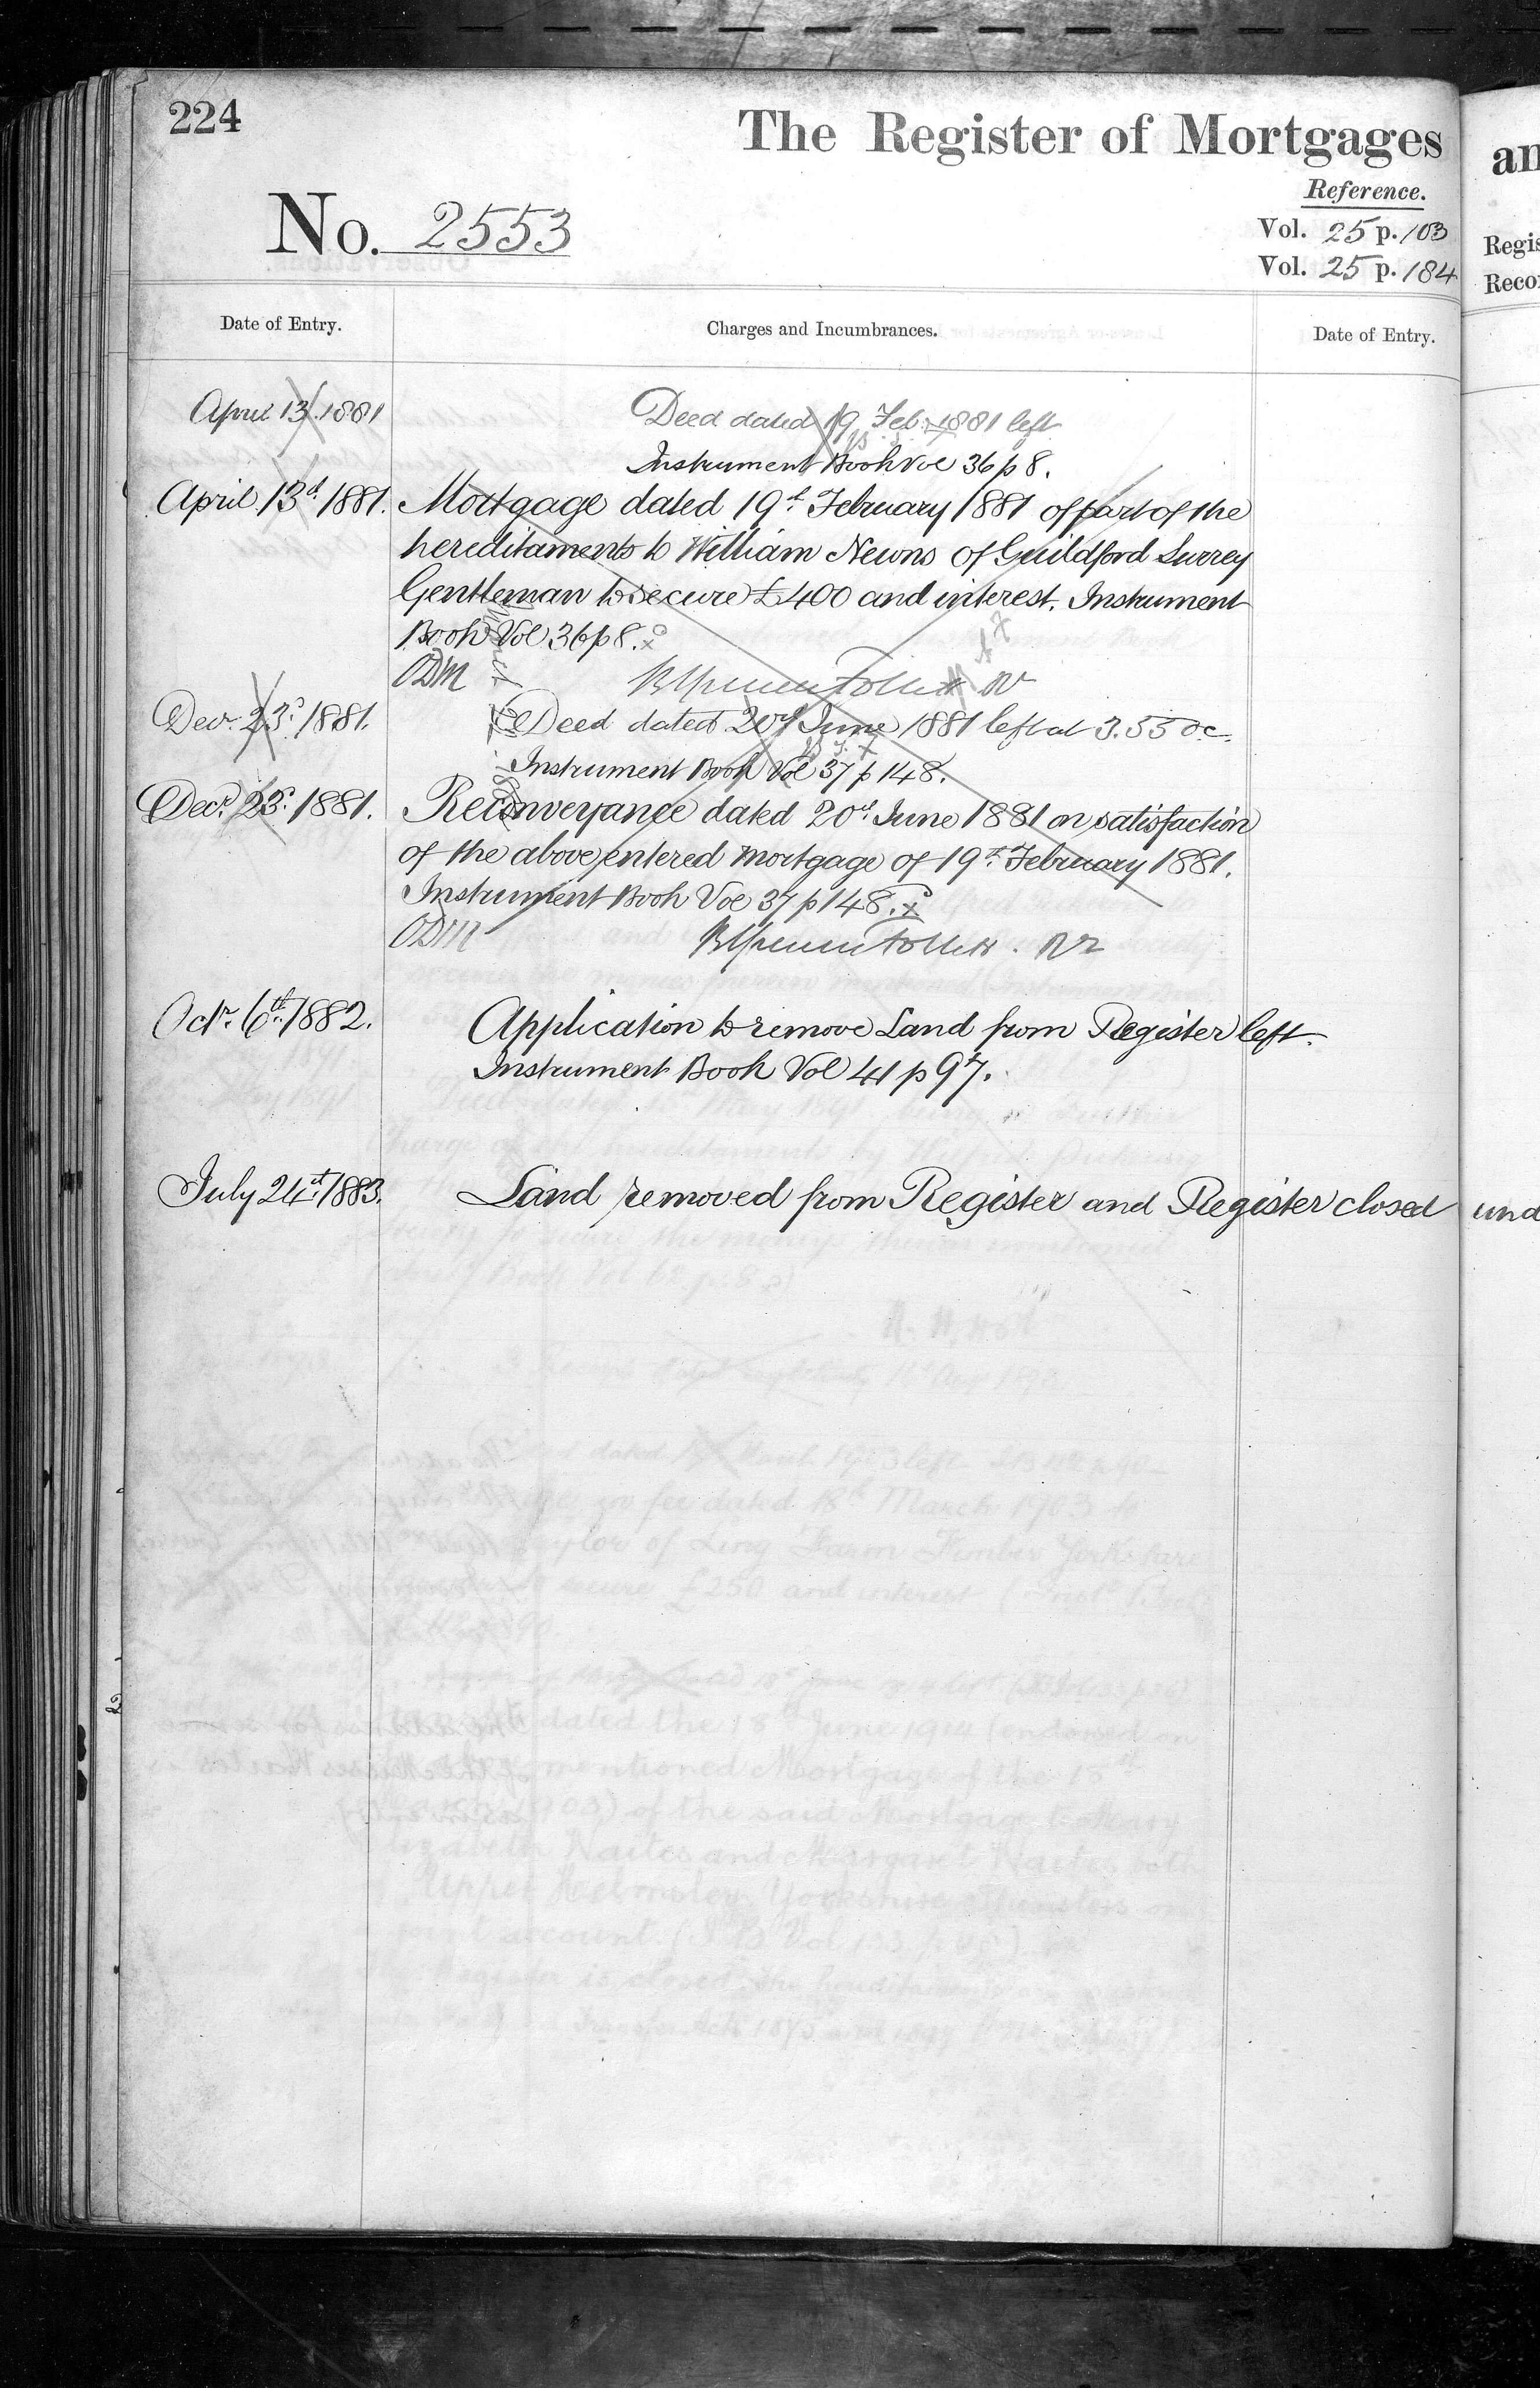 224
The Register of Mortgages
an
Reference.
No. 2553
Vol. 25 p. 103
Regis
Vol. 25 p. 184
Reco
Date of Entry.
Charges and Incumbrances.
Date of Entry.
April 13. 1881
Deed dated 19 Feb. 1881 left
Instrument Book Vol 36 p 8.
April 13th 1881.
Mortgage dated 19th February 1881 of part of the
hereditaments to William Newns of Guildford Surrey
Gentleman to secure £400 and interest. Instrument
Book Vol 36 p 8.
ODM
Follett
Decr 23d. 1881.
Deed dated 20th June 1881 left at 3.55 oc.
Instrument Book Vol 37 p 148.
Decr 23d. 1881.
Reconveyance dated 20th June 1881 on satisfaction
of the above entered Mortgage of 19th February 1881.
Instrument Book Vol 37 p 148.
ODM
Follett
Octr. 6th. 1882.
Application to remove Land from Register left.
Instrument Book Vol 41 p 97.
July 24th. 1883.
Land removed from Register and Register closed
und